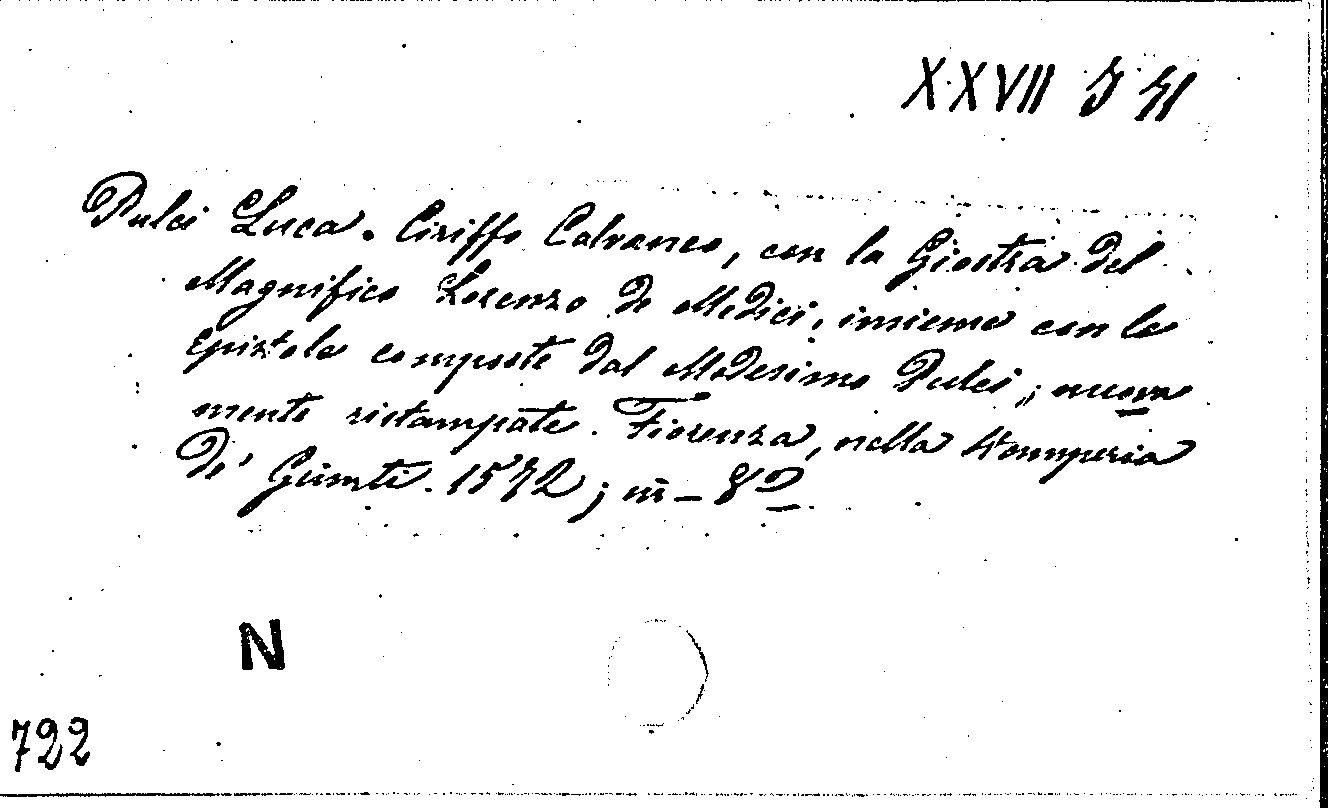 XXVII J 41
Pulci Luca. Ciriffo Calvaneo, con la Giostra del
Magnifico Lorenzo de Medici, insieme con le
epistole composte dal Medesimo Pulci; nuova
mente ristampate. Fiorenza, nella Stamperia
de' Giunti. 1572; in-8º
N
722